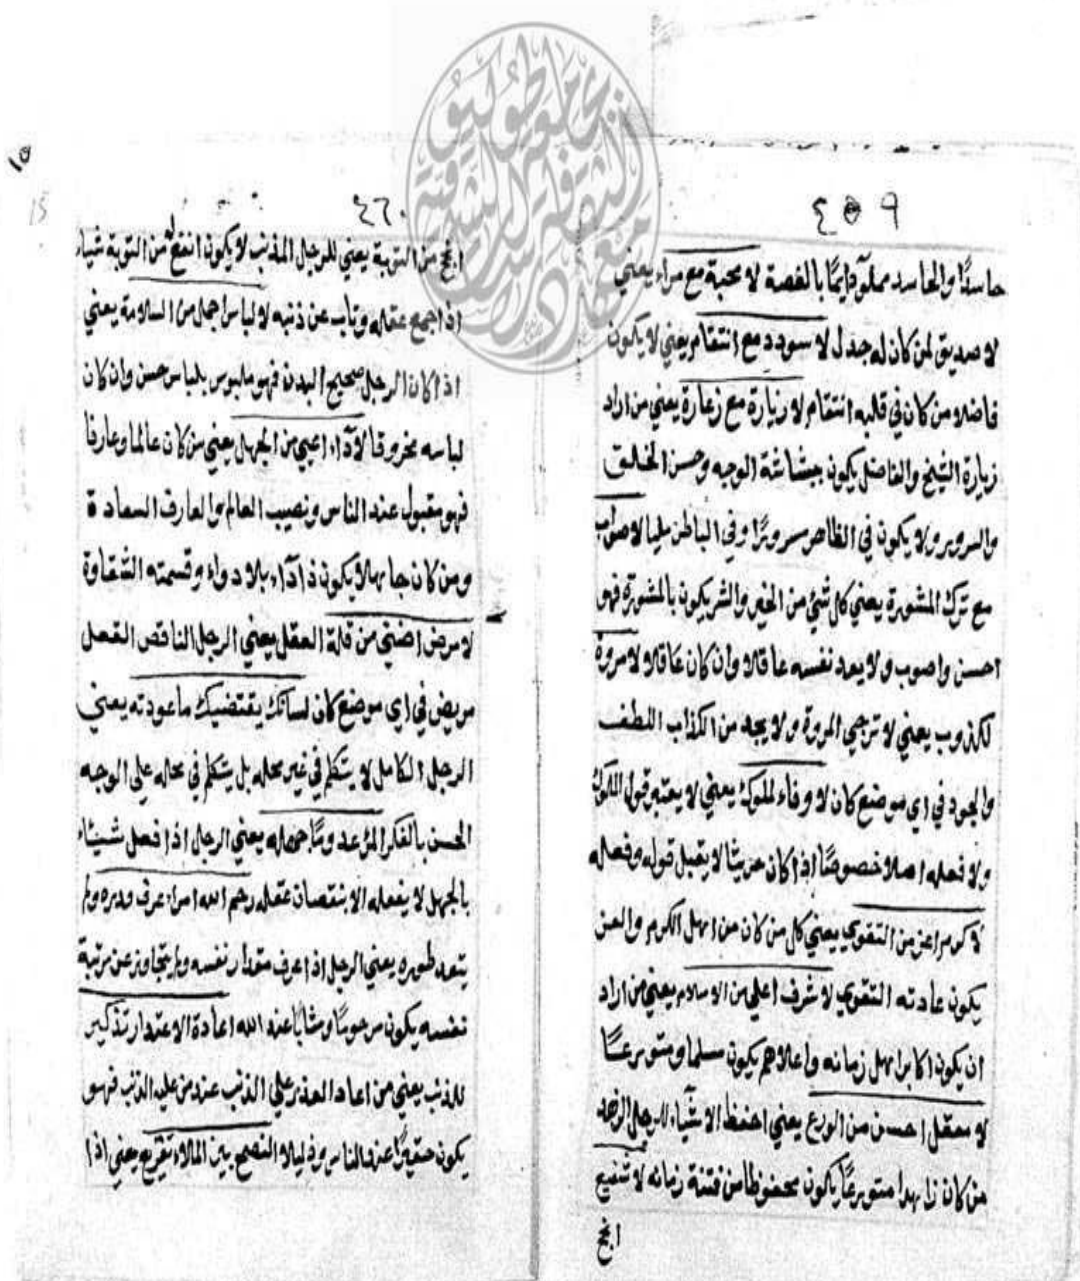 ٤٥٩
حاسدًا والحاسد مملوّ دايمًا بالغصة لا محبة مع مراء يعني
لا صديق لمن كان له جدل لا سودد مع انتقام يعني لا يكون
فاضلا من كان في قلبه انتقام لا زيارة مع زعارة يعني من اراد
زيارة الشيخ والفاضل يكون ببشاشة الوجيه وحسن الخلق
والسرور ولا يكون في الظاهر سرورًا وفي الباطن مليا لا صواب
مع ترك المشورة يعني كل شئ من الخير والشر يكون بالمشورة فهو
احسن واصوب ولا يعد نفسه عاقلا وان كان عاقلا لا مروة
لكذوب يعني لا ترجي المروة ولا يجد من الكذاب اللطف
والجود في اي موضع كان لا وفاء لملوك يعني لا يعتبر قول الملوك
ولا فعله اصلا خصوصًا اذا كان لا يقبل قوله وفعله
لا كرم اعز من التقوي يعني كل من كان من اهل الكرم والعز
يكون عادته التقوي لا شرف اعلي من الاسلام يعني من اراد
ان يكون اكابر اهل زمانه واعلاهم يكون مسلما ومتورعًا
لا معقل احسن من الورع يعني احفظ الاشياء للرجل الزهد
من كان زاهدا متورعًا يكون محفوظا من فتنة زمانه لا شفيع
انجح
٤٦٠
انجح من التوبة يعني للرجل المذنب لا يكون انفع من التوبة شيئا
اذا جمع عقله وتاب عن ذنبه لا لباس اجمل من السلامة يعني
اذا كان الرجل صحيح البدن فهو ملبوس بلباس حسن وان كان
لباسه مخروقا لا داء اعيي من الجهل يعني من كان عالما وعارفا
فهو مقبول عند الناس ونصيب العالم والعارف السعادة
ومن كان جاهلا يكون ذا داء بلا دواء وقسمته الشقاوة
لا مرض اضني من قلة العقل يعني الرجل الناقص العقل
مريض في اي موضع كان لسانك يقتضيك ما عودته يعني
الرجل الكامل لا يتكلم في غير محله بل يتكلم في محله علي الوجه
الحسن بالفكر المرء عدو ما جهله يعني الرجل اذا فعل شيئا
بالجهل لا يفعله الا بنقصان عقله رحم الله امراء عرف قدره ولم
يتعد طوره يعني الرجل اذا عرف مقدار نفسه ولم يتجاوز عن مرتبة
نفسه يكون مرحومًا ومثابًا عند الله اعادة الاعتذار تذكير
للذنب يعني من اعاد العذر علي الذنب عند من عليه الذنب فهو
يكون حقيرًا عند الناس وذليلا النصح بين الملاء تقريع يعني اذا
١٥
15